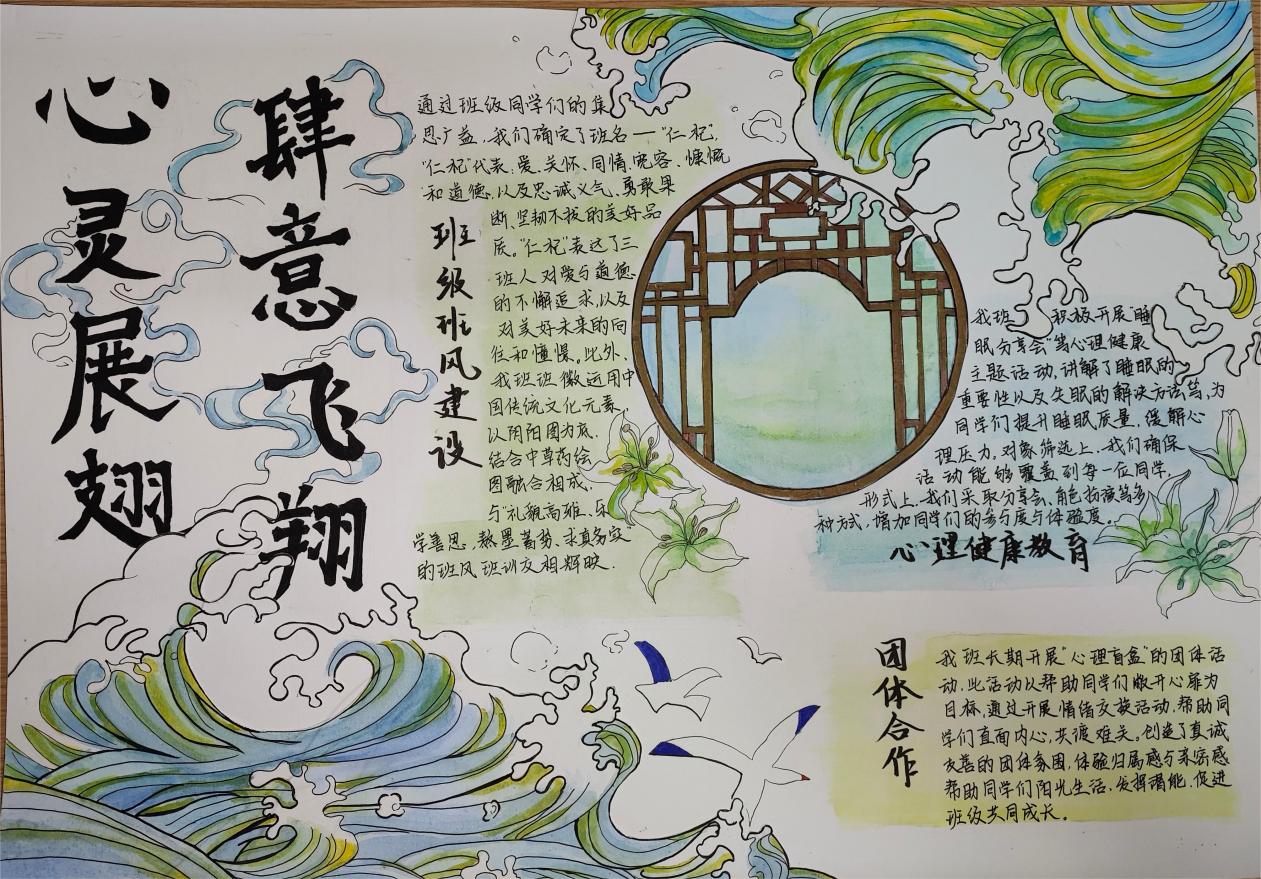 心灵展翅
肆意飞翔
通过班级同学们的集
思广益，我们确定了班名—“仁祝”，
“仁祝”代表：爱、关怀、同情、宽容、慷慨
和道德，以及忠诚义气、勇敢果
断、坚韧不拔的美好品
质。“仁祝”表达了三
班人对爱与道德
的不懈追求，以及
对美好未来的向
往和憧憬。此外，
我班班徽运用中
国传统文化元素，
以阴阳图为底，
结合中草药绘
图融合相成，
与“礼貌高雅、乐
学善思，熟墨蓄势、求真务实
的班风班训交相辉映．
班级班风建设
我班 积极开展“睡
眠分享会”等心理健康
主题活动，讲解了睡眠的
重要性以及失眠的解决方法等，为
同学们提升睡眠质量，缓解心
理压力，对象筛选上，我们确保
活动能够覆盖到每一位同学，
形式上，我们采取分享会、角色扮演等多
种方式，增加同学们的参与度与体验度。
心理健康教育
团体合作
我班长期开展“心理盲盒”的团体活
动，此活动以帮助同学们敞开心扉为
目标，通过开展情绪交换活动，帮助同
学们直面内心，共渡难关。创造了真诚
友善的团体氛围，体验归属感与亲密感
帮助同学们阳光生活，发挥潜能，促进
班级共同成长。